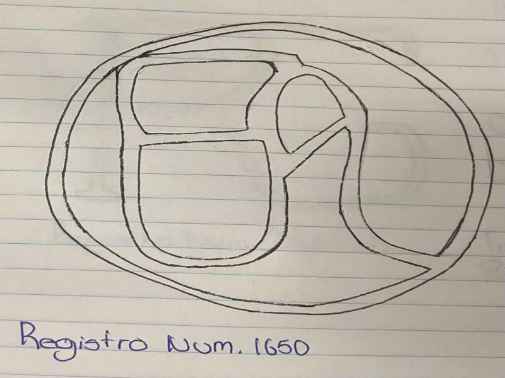 Registro Num. 1650